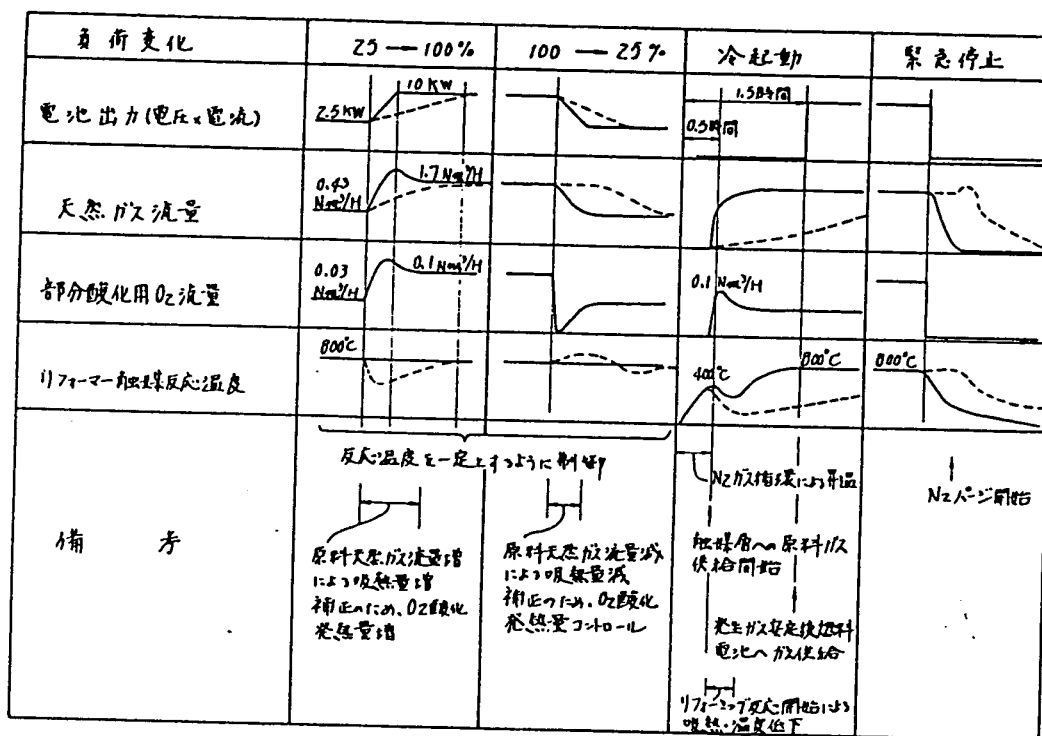 負荷変化
25 → 100%
100 → 25%
冷起動
緊急停止
電池出力(電圧×電流)
2.5KW
10KW
1.5時間
0.5時間
天然ガス流量
0.43
Nm³/H
1.7Nm³/H
部分酸化用O2流量
0.03
Nm³/H
0.1Nm³/H
0.1Nm³/H
リフォーマー触媒反応温度
800℃
400℃
800℃
800℃
反応温度を一定とするように制御
備 考
原料天然ガス流量増
による吸熱量増
補正のため、O2酸化
発熱量増
原料天然ガス流量減
による吸熱量減
補正のため、O2酸化
発熱量コントロール
N2ガス循環による昇温
触媒層への原料ガス
供給開始
発生ガス安定後燃料
電池へガス供給
リフォーミング反応開始による
吸熱・温度低下
N2パージ開始